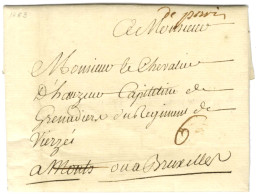 de paris
A Monsieur
Monsieur le Chevalier
D'houzeur Capitaine de
Grenadiers du Regiment de
Vierzet
6
a Monts ou a Bruxelles